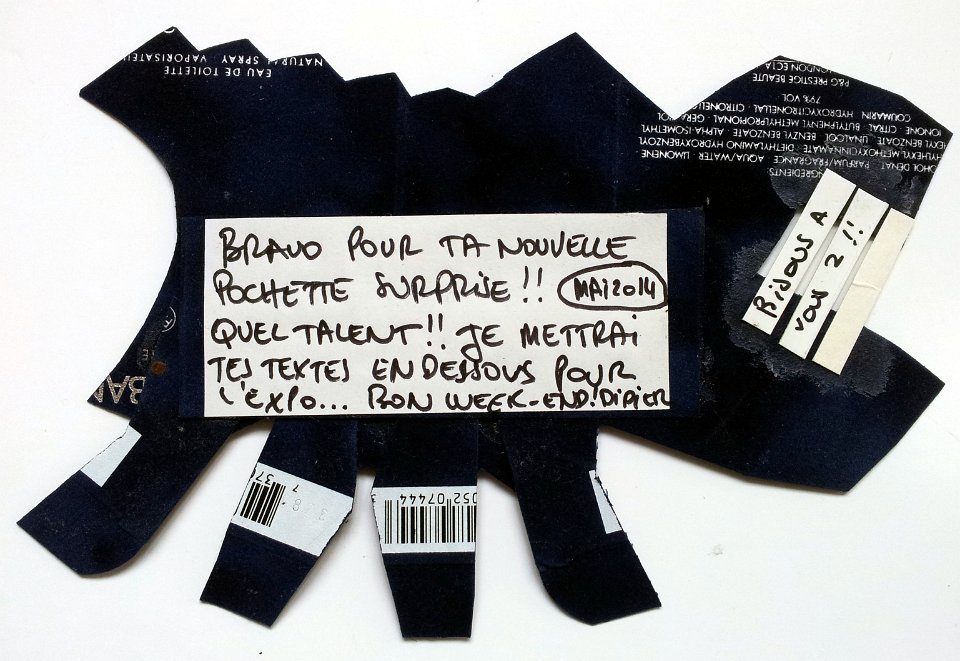 NATURAL SPRAY VAPORISATEU
EAU DE TOILETTE
BRAVO POUR TA NOUVELLE
POCHETTE SURPRISE!! MAI 2014
QUEL TALENT!! JE METTRAI
TES TEXTES EN DESSOUS POUR
L'EXPO... BON WEEK-END! DIDIER
BISOUS A
VOUS 2 !!
GREDIENTS
OHOL DENAT PARFUM/FRAGRANCE · AQUA/WATER · LIMONENE ·
HYLHEXYL METHOXYCINNAMATE · DIETHYLAMINO HYDROXYBENZOYL
HEXYL BENZOATE · LINALOOL · BENZYL BENZOATE · ALPHA-ISOMETHYL
IONONE · CITRAL · BUTYLPHENYL METHYLPROPIONAL · GERANIOL
COUMARIN · HYDROXYCITRONELLAL · CITRONELLO
79% VOL
P&G PRESTIGE BEAUTE
LONDON EC1A
BAN
7 370
8 3
052 07444